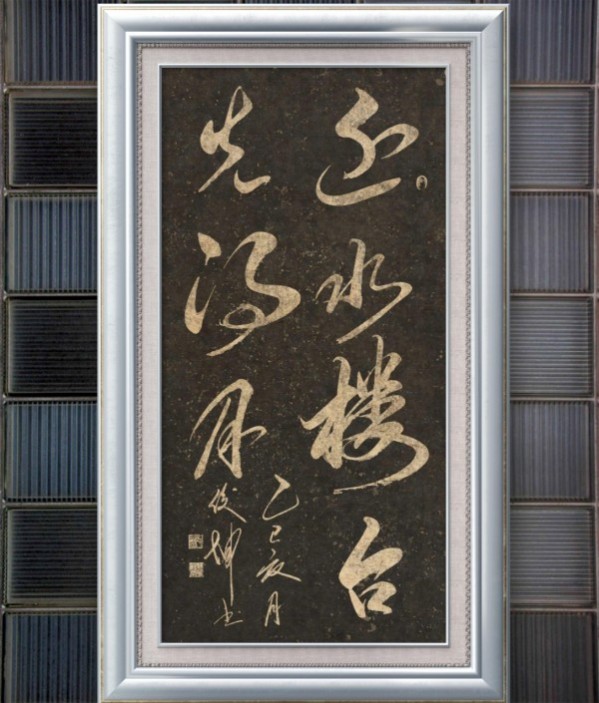 近水楼台
先得月
乙巳夏月
俊坤书